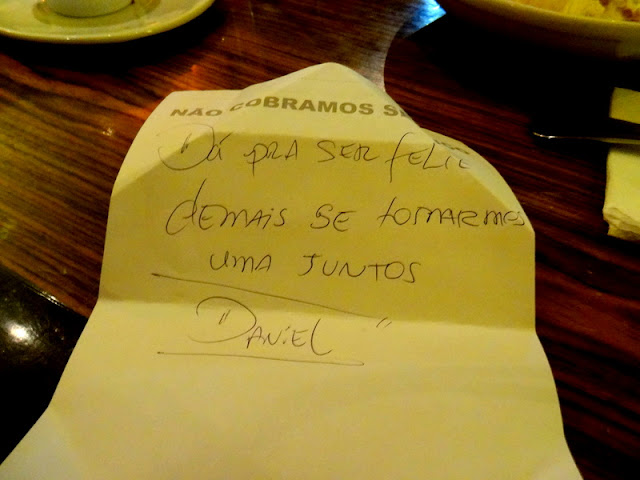 NÃO COBRAMOS
"Dá pra ser feliz
demais se tomarmos
uma juntos
"Daniel"